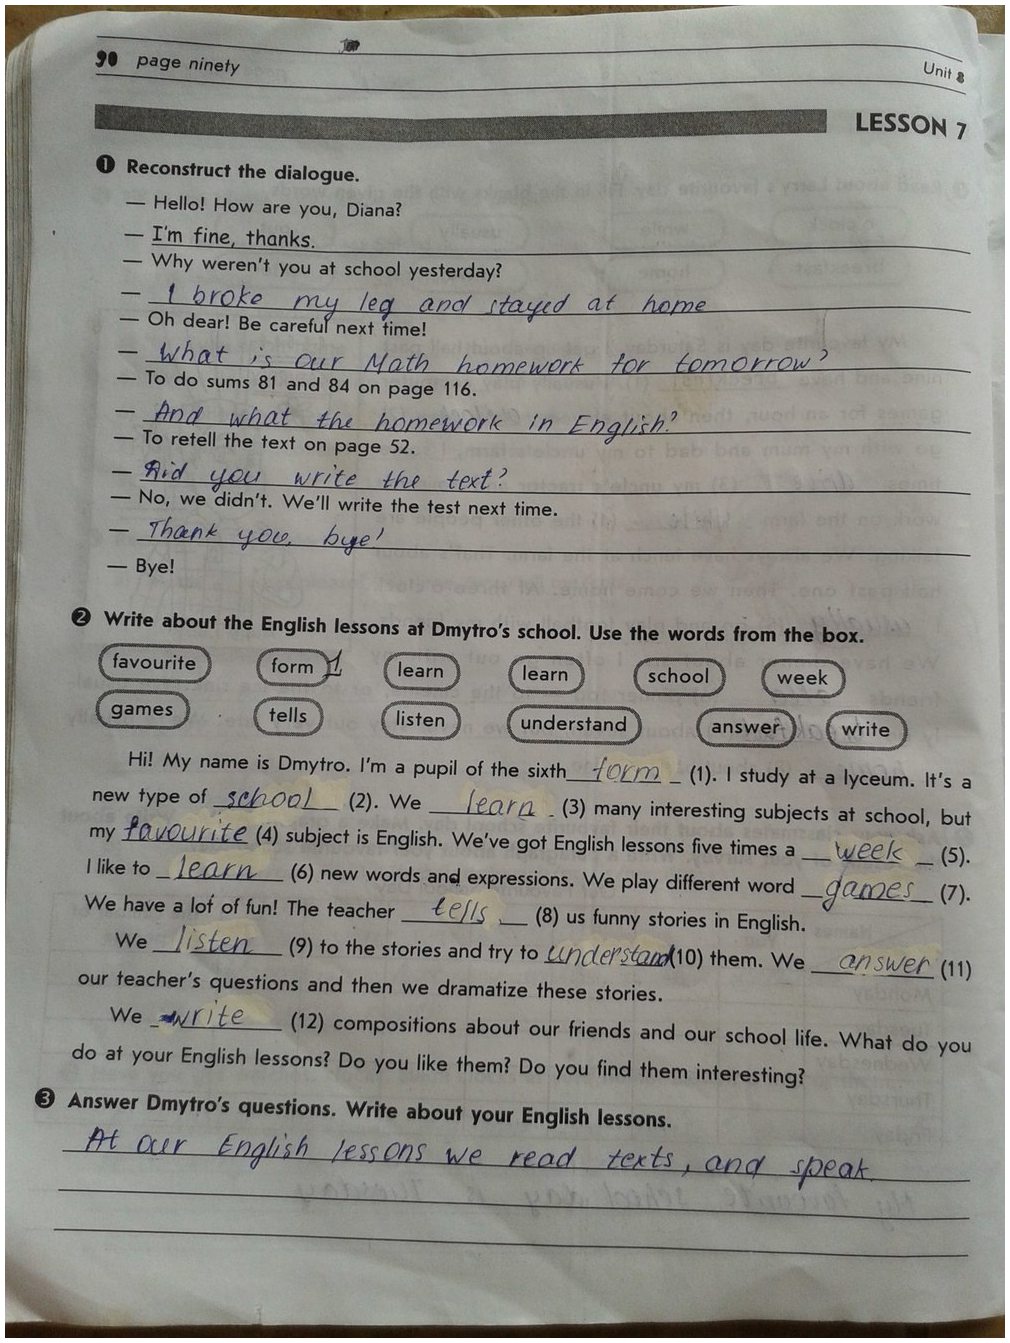 90 page ninety
Unit 8
LESSON 7
❶ Reconstruct the dialogue.
— Hello! How are you, Diana?
— I'm fine, thanks.
— Why weren't you at school yesterday?
— I broke my leg and stayed at home
— Oh dear! Be careful next time!
— What is our Math homework for tomorrow?
— To do sums 81 and 84 on page 116.
— And what the homework in English?
— To retell the text on page 52.
— Did you write the text?
— No, we didn't. We'll write the test next time.
— Thank you, bye!
— Bye!
❷ Write about the English lessons at Dmytro's school. Use the words from the box.
favourite form 1 learn learn school week
games tells listen understand answer write
Hi! My name is Dmytro. I'm a pupil of the sixth form (1). I study at a lyceum. It's a
new type of school (2). We learn (3) many interesting subjects at school, but
my favourite (4) subject is English. We've got English lessons five times a week (5).
I like to learn (6) new words and expressions. We play different word games (7).
We have a lot of fun! The teacher tells (8) us funny stories in English.
We listen (9) to the stories and try to understand (10) them. We answer (11)
our teacher's questions and then we dramatize these stories.
We write (12) compositions about our friends and our school life. What do you
do at your English lessons? Do you like them? Do you find them interesting?
❸ Answer Dmytro's questions. Write about your English lessons.
At our English lessons we read texts, and speak.